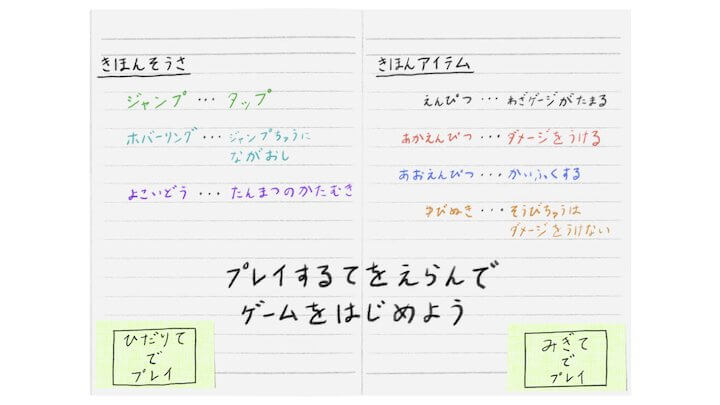 きほんそうさ
ジャンプ・・・タップ
ホバーリング・・・ジャンプちゅうに
ながおし
よこいどう・・・たんまつのかたむき
きほんアイテム
えんぴつ・・・わざゲージがたまる
あかえんぴつ・・・ダメージをうける
あおえんぴつ・・・かいふくする
ゆびぬき・・・そうびちゅうは
ダメージをうけない
プレイするてをえらんで
ゲームをはじめよう
ひだりて
で
プレイ
みぎて
で
プレイ